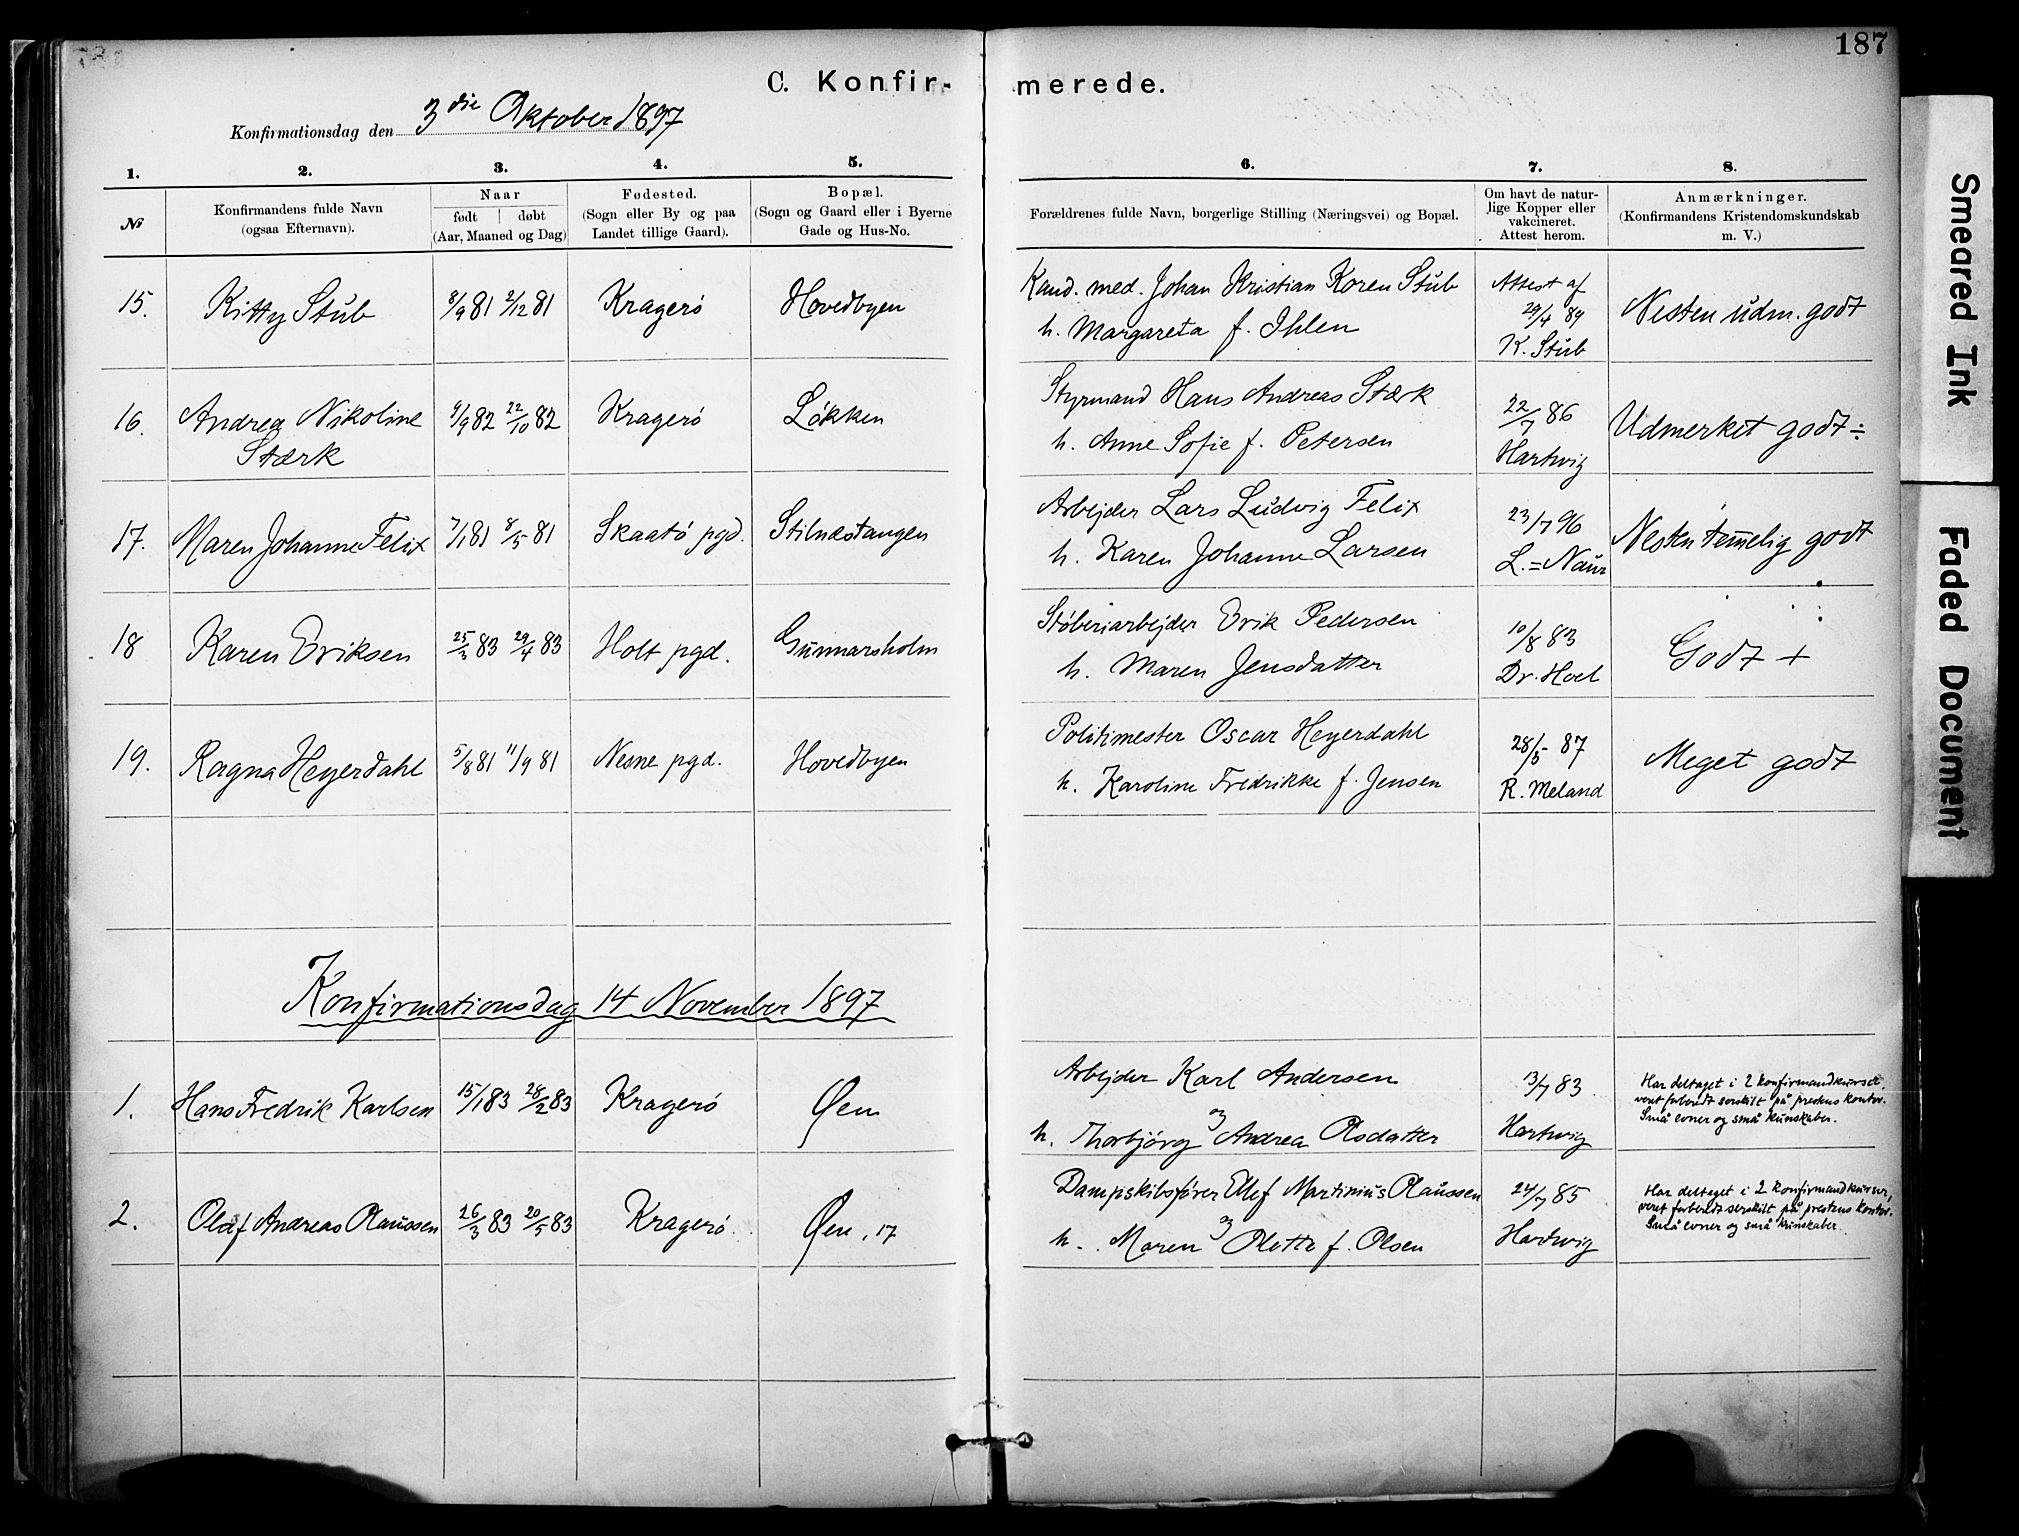 187
C. Konfir- merede.
Konfirmationsdag den 3die Oktober 1897
1. 2. 3. 4. 5. 6. 7. 8.
№
Konfirmandens fulde Navn
(ogsaa Efternavn).
Naar
født | døbt
(Aar, Maaned og Dag)
Fødested.
(Sogn eller By og paa
Landet tillige Gaard).
Bopæl.
(Sogn og Gaard eller i Byerne
Gade og Hus-No.
Forældrenes fulde Navn, borgerlige Stilling (Næringsvei) og Bopæl.
Om havt de natur-
lige Kopper eller
vakcineret.
Attest herom.
Anmærkninger.
(Konfirmandens Kristendomskundskab
m. V.)
15. Kitty Stub 8/9 81 2/12 81 Kragerö Hovedbyen
Kand. med. Johan Kristian Koren Stub
h. Margareta f. Ihlen
Attest af
29/4 89
K. Stub
Nesten udm. godt
16. Andrea Nikoline
Stærk
9/9 82 22/10 82 Kragerö Løkken
Styrmand Hans Andreas Stærk
h. Anne Sofie f. Petersen
22/7 86
Hartwig
Udmerket godt ÷
17. Maren Johanne Felix 7/1 81 8/5 81 Skaatö pgd. Stilnæstangen
Arbejder Lars Ludvig Felix
h. Karen Johanne Larsen
23/7 96
L. = Naur
Nesten temmelig godt
18 Karen Eriksen 25/3 83 29/4 83 Holt pgd. Gunnarsholm
Støberiarbejder Erik Pedersen
h. Maren Jensdatter
10/8 83
Dr. Hoel
Godt +
19. Ragna Heyerdahl 5/8 81 11/9 81 Nesne pgd. Hovedbyen
Politimester Oscar Heyerdahl
h. Karoline Fredrikke f. Jensen
28/5 87
R. Meland
Meget godt
Konfirmationsdag 14 November 1897
1. Hans Fredrik Karlsen 15/1 83 28/2 83 Kragerö Øen
Arbejder Karl Andersen
og
h. Thorbjörg Andrea Olsdatter
13/7 83
Hartwig
Har deltaget i 2 konfirmandkurser,
veret forberedt serskilt på prestens kontor.
Små evner og små kunskaber.
2. Olaf Andreas Olaussen 26/3 83 20/5 83 Kragerö Øen, 17
Dampskibsfører Ellef Martinius Olaussen
og
h. Maren Olette f. Olsen
24/7 85
Hartwig
Har deltaget i 2 konfirmandkurser,
veret forberedt serskilt på prestens kontor.
Små evner og små kunskaber.
Smeared Ink
Faded Document